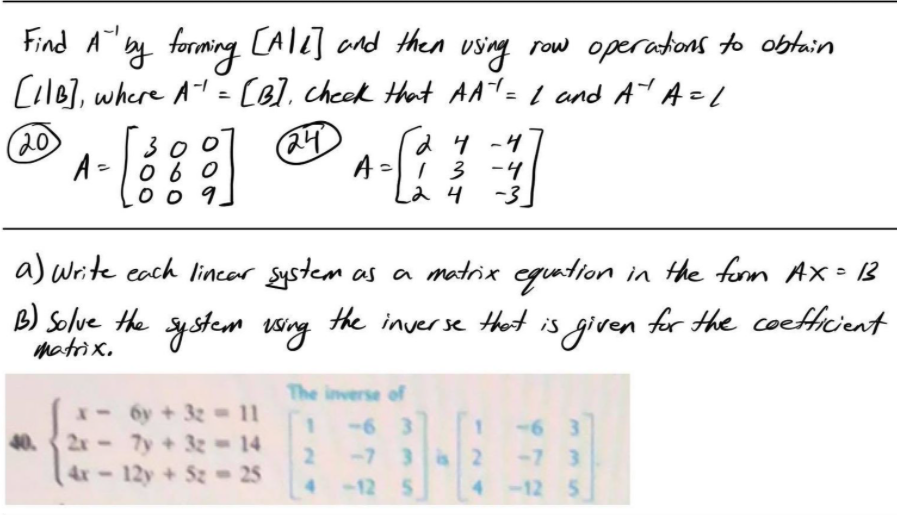 Find A⁻¹ by forming [A|I] and then using row operations to obtain
[I|B], where A⁻¹ = [B]. Check that AA⁻¹ = I and A⁻¹ A = I
20 A = [3 0 0 24 A = [2 4 -4
0 6 0 1 3 -4
0 0 9] 2 4 -3]
a) Write each linear system as a matrix equation in the form AX = B
B) Solve the system using the inverse that is given for the coefficient
matrix.
The inverse of
x - 6y + 3z = 11 [1 -6 3 [1 -6 3
40. { 2x - 7y + 3z = 14 2 -7 3 is 2 -7 3
4x - 12y + 5z = 25 4 -12 5] 4 -12 5].